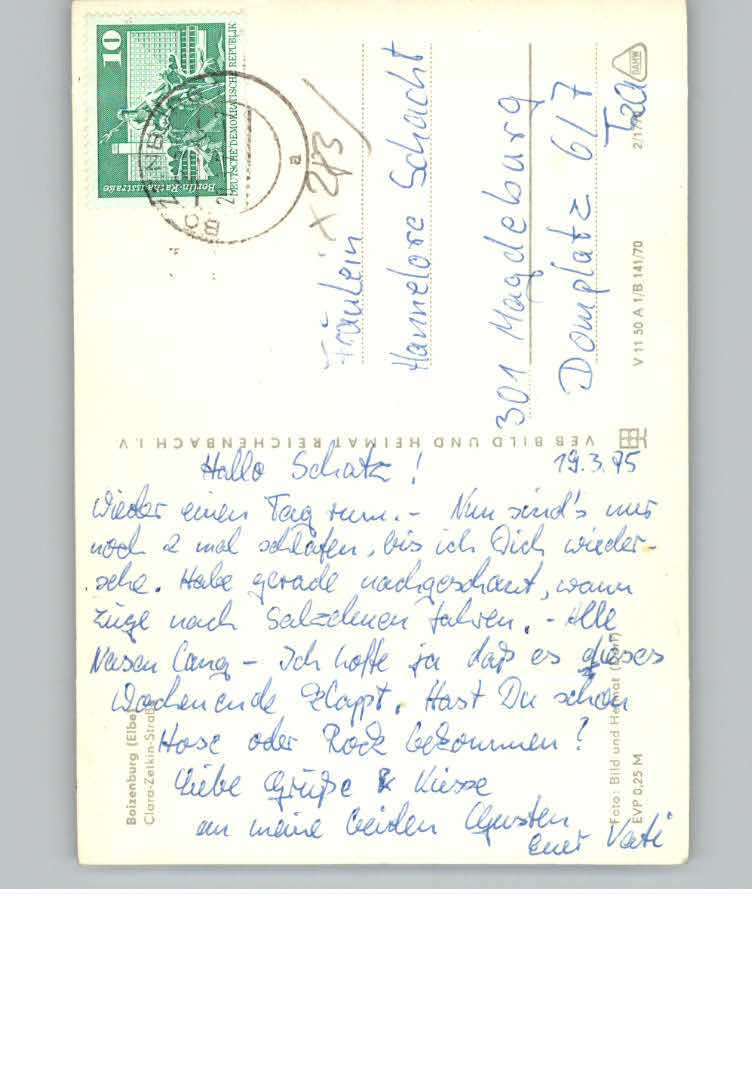 Hallo Schatz!
19.3.75
Wieder einen Tag rum.- Nun sind's nur
noch 2 mal schlafen, bis ich Dich wieder-
sehe. Habe gerade nachgeschaut, wann
Züge nach fahren. - Alle
Nasen lang - Ich hoffe ja daß es dieses
Wochenende klappt. Hast Du schon
Hose oder Rock bekommen?
Liebe Grüße & Küsse
an meine beiden
Euer Vati
Fräulein
Hannelore Schacht
301 Magdeburg
Domplatz 6/7
10
DEUTSCHE DEMOKRATISCHE REPUBLIK
Berlin-Rathausstraße
a
VEB BILD UND HEIMAT REICHENBACH I. V
V 11 50 A 1/B 141/70
DAMW
Boizenburg (Elbe)
Clara-Zetkin-Straße
Foto: Bild und Heimat
EVP 0,25 M